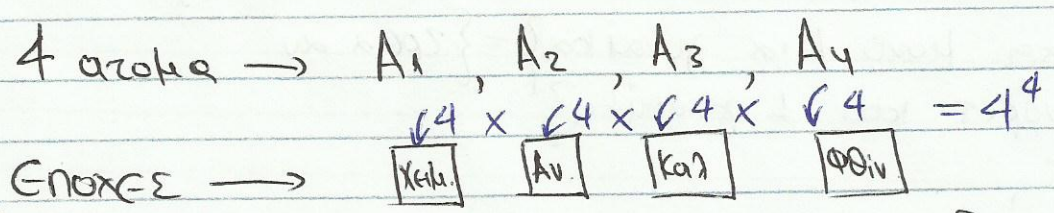 4 άτομα → A1, A2, A3, A4
↙4 x ↙4 x ↙4 x ↙4 = 4^4
ΕΠΟΧΕΣ → Χειμ. Αν. Καλ Φθιν.